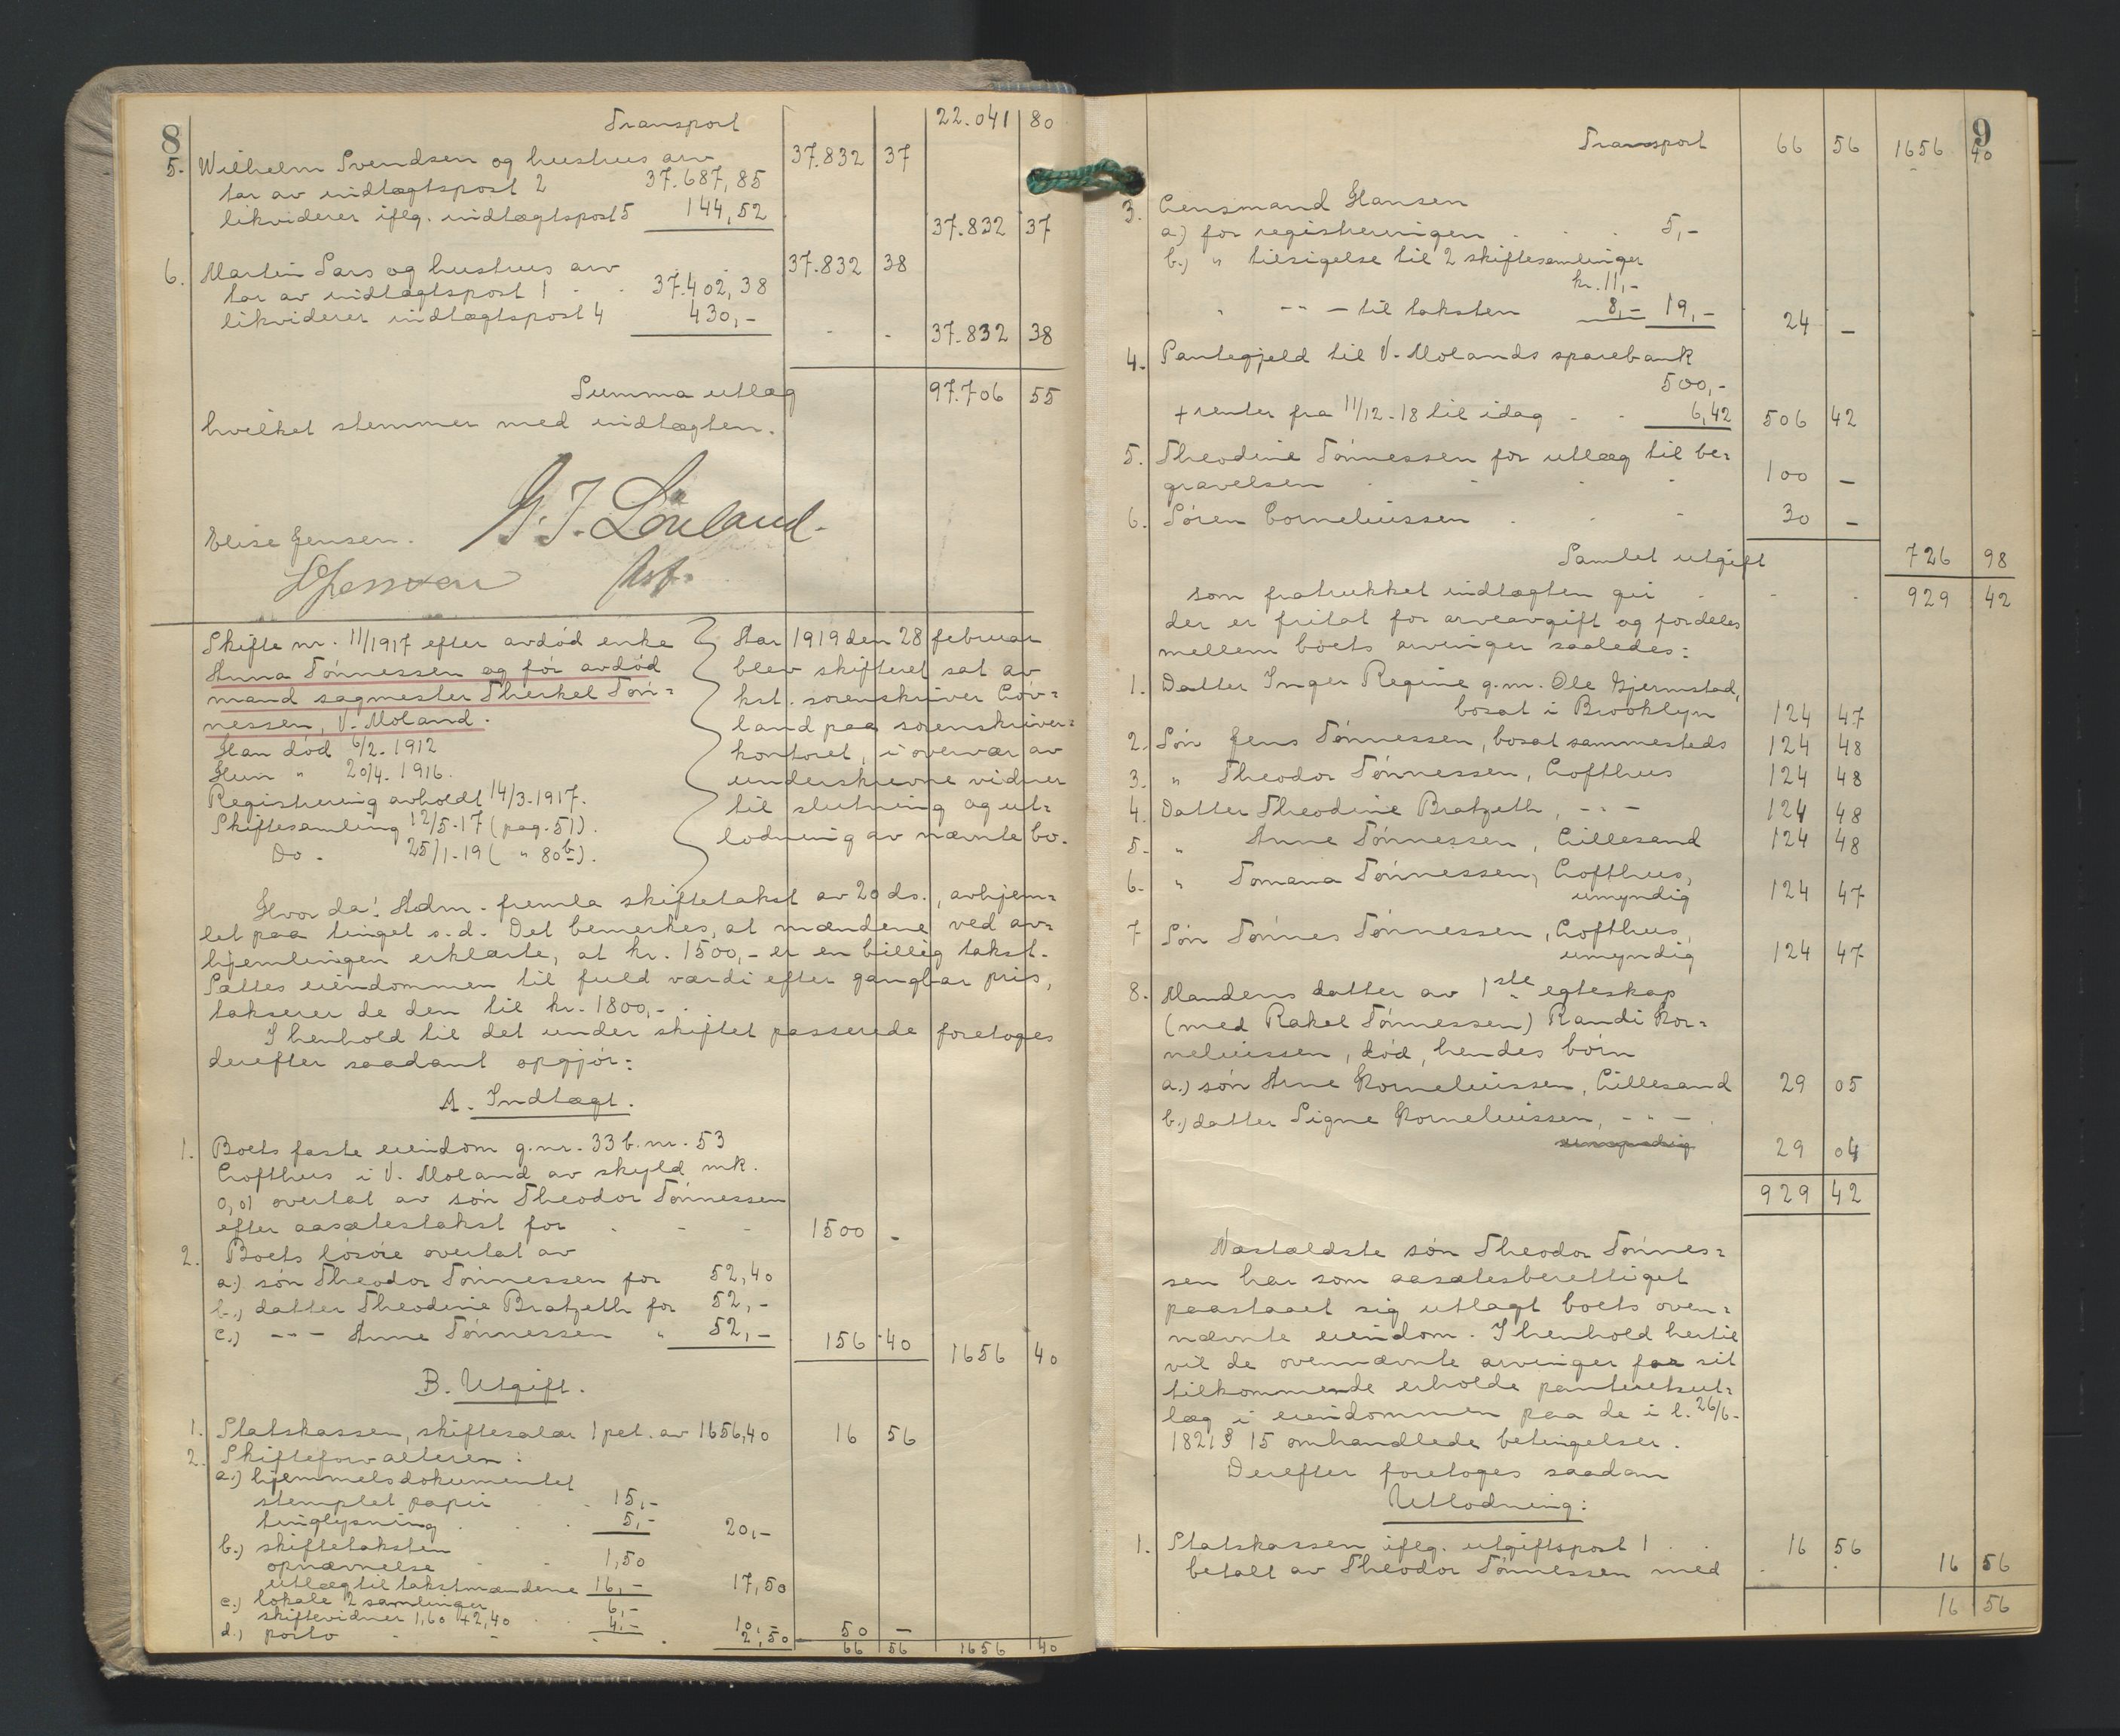 8
Transport 22.041 80
5. Wilhelm Svendsen og hustrus arv 37.832 37
tar av indtægtspost 2 37.687,85
likviderer ifølg. indtægtspost 5 144,52 37.832 37
6. Martin Lars og hustrus arv 37.832 38
tar av indtægtspost 1 37.402,38
likviderer indtægtspost 4 430,- 37.832 38
Summa utlæg 97.706 55
hvilket stemmer med indtægten.
Elise Jensen.
Skifte nr. 11/1917 efter avdød enke
Anna Tønnessen og før avdød
mand sagmester Therkel Tøn-
nessen, V. Moland.
Han død 6/2-1912
Hun " 20/4-1916.
Registrering avholdt 14/3-1917.
Skiftesamling 12/5-17 (pag. 51).
Do. 25/1-19 ( " 80b).
Aar 1919 den 28 februar
blev skifteret sat av
kst. sorenskriver Løv-
land paa sorenskriver-
kontoret, i overvær av
underskrevne vidner
til slutning og ut-
lodning av nævnte bo.
Hvor da: Adm. fremla skiftetakst av 20 ds., avhjem-
let paa tinget s.d. Det bemerkes, at mændene ved av-
hjemlingen erklærte, at kr. 1500,- er en billig takst.
Sættes eiendommen til fuld værdi efter gangbar pris,
takserer de den til kr. 1800,-.
I henhold til det under skiftet passerede foretoges
derefter saadant opgjør:
A. Indtægt.
1. Boets faste eiendom g.nr. 33 b.nr. 53
Lofthus i V. Moland av skyld mk.
0,01 overtat av søn Theodor Tønnessen
efter aasætestakst for 1500 -
2. Boets løsøre overtat av
a.) søn Theodor Tønnessen for 52,40
b.) datter Theodine Bratzeth for 52,-
c.) --- Anne Tønnessen " 52,- 156 40 1656 40
B. Utgift.
1. Statskassen, skiftesalær 1 pct. av 1656,40 16 56
2. Skifteforvalteren:
a.) hjemmelsdokumentet
stemplet papir 15,-
tinglysning 5,- 20,-
b.) skiftetaksten
opnævnelse 1,50
utlæg til takstmændene 16,- 17,50
c.) lokale 2 samlinger 6,-
skiftevidner 1,60 + 2,40 4,- 10,-
d.) porto 2,50 50 -
66 56 1656 40
9
Transport 66 56 1656 40
3. Lensmand Hansen
a.) for registreringen 5,-
b.) " tilsigelse til 2 skiftesamlinger
kr. 11,-
" --- til taksten 8,- 19,- 24 -
4. Pantegjeld til V. Molands sparebank
500,-
+ renter fra 11/12-18 til idag 6,42 506 42
5. Theodine Tønnessen for utlæg til be-
gravelsen 100 -
6. Søren Corneliussen 30 -
Samlet utgift 726 98
som fratrukket indtægten gir 929 42
der er fritat for arveavgift og fordeles
mellem boets arvinger saaledes:
1. Datter Inger Regine g.m. Ole Gjermstad,
bosat i Brooklyn 124 47
2. Søn Jens Tønnessen, bosat sammesteds 124 48
3. " Theodor Tønnessen, Lofthus 124 48
4. Datter Theodine Bratzeth, -"- 124 48
5. " Anne Tønnessen, Lillesand 124 48
6. " Tomana Tønnessen, Lofthus,
umyndig 124 47
7 Søn Tønnes Tønnessen, Lofthus,
umyndig 124 47
8. Mandens datter av 1ste egteskap
(med Rakel Tønnessen) Randi Kor-
neliussen, død, hendes børn
a.) søn Arne Korneliussen, Lillesand 29 05
b.) datter Signe Korneliussen, -"-
umyndig 29 04
929 42
Næstældste søn Theodor Tønnes-
sen har som aasætesberettiget
paastaaet sig utlagt boets oven-
nævnte eiendom. I henhold hertil
vil de ovennævnte arvinger for sit
tilkommende erholde panteretsut-
læg i eiendommen paa de i l. 26/6-
1821 § 15 omhandlede betingelser.
Derefter foretoges saadan
Utlodning:
1. Statskassen ifølg. utgiftspost 1 16 56
betalt av Theodor Tønnessen med 16 56
16 56